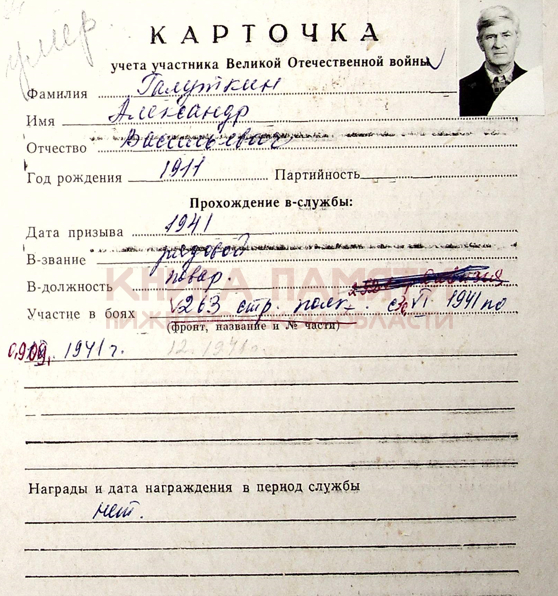 умер
КАРТОЧКА
учета участника Великой Отечественной войны
Фамилия Галуткин
Имя Александр
Отчество Васильевич
Год рождения 1911 Партийность
Прохождение в-службы:
Дата призыва 1941
В-звание рядовой
В-должность повар.
Участие в боях 263 стр. полк. с VI 1941 по
(фронт, название и № части)
09. 1941 г. 12.1941г.
КНИГА ПАМЯТИ
НИЖЕГОРОДСКОЙ ОБЛАСТИ
Награды и дата награждения в период службы
нет.